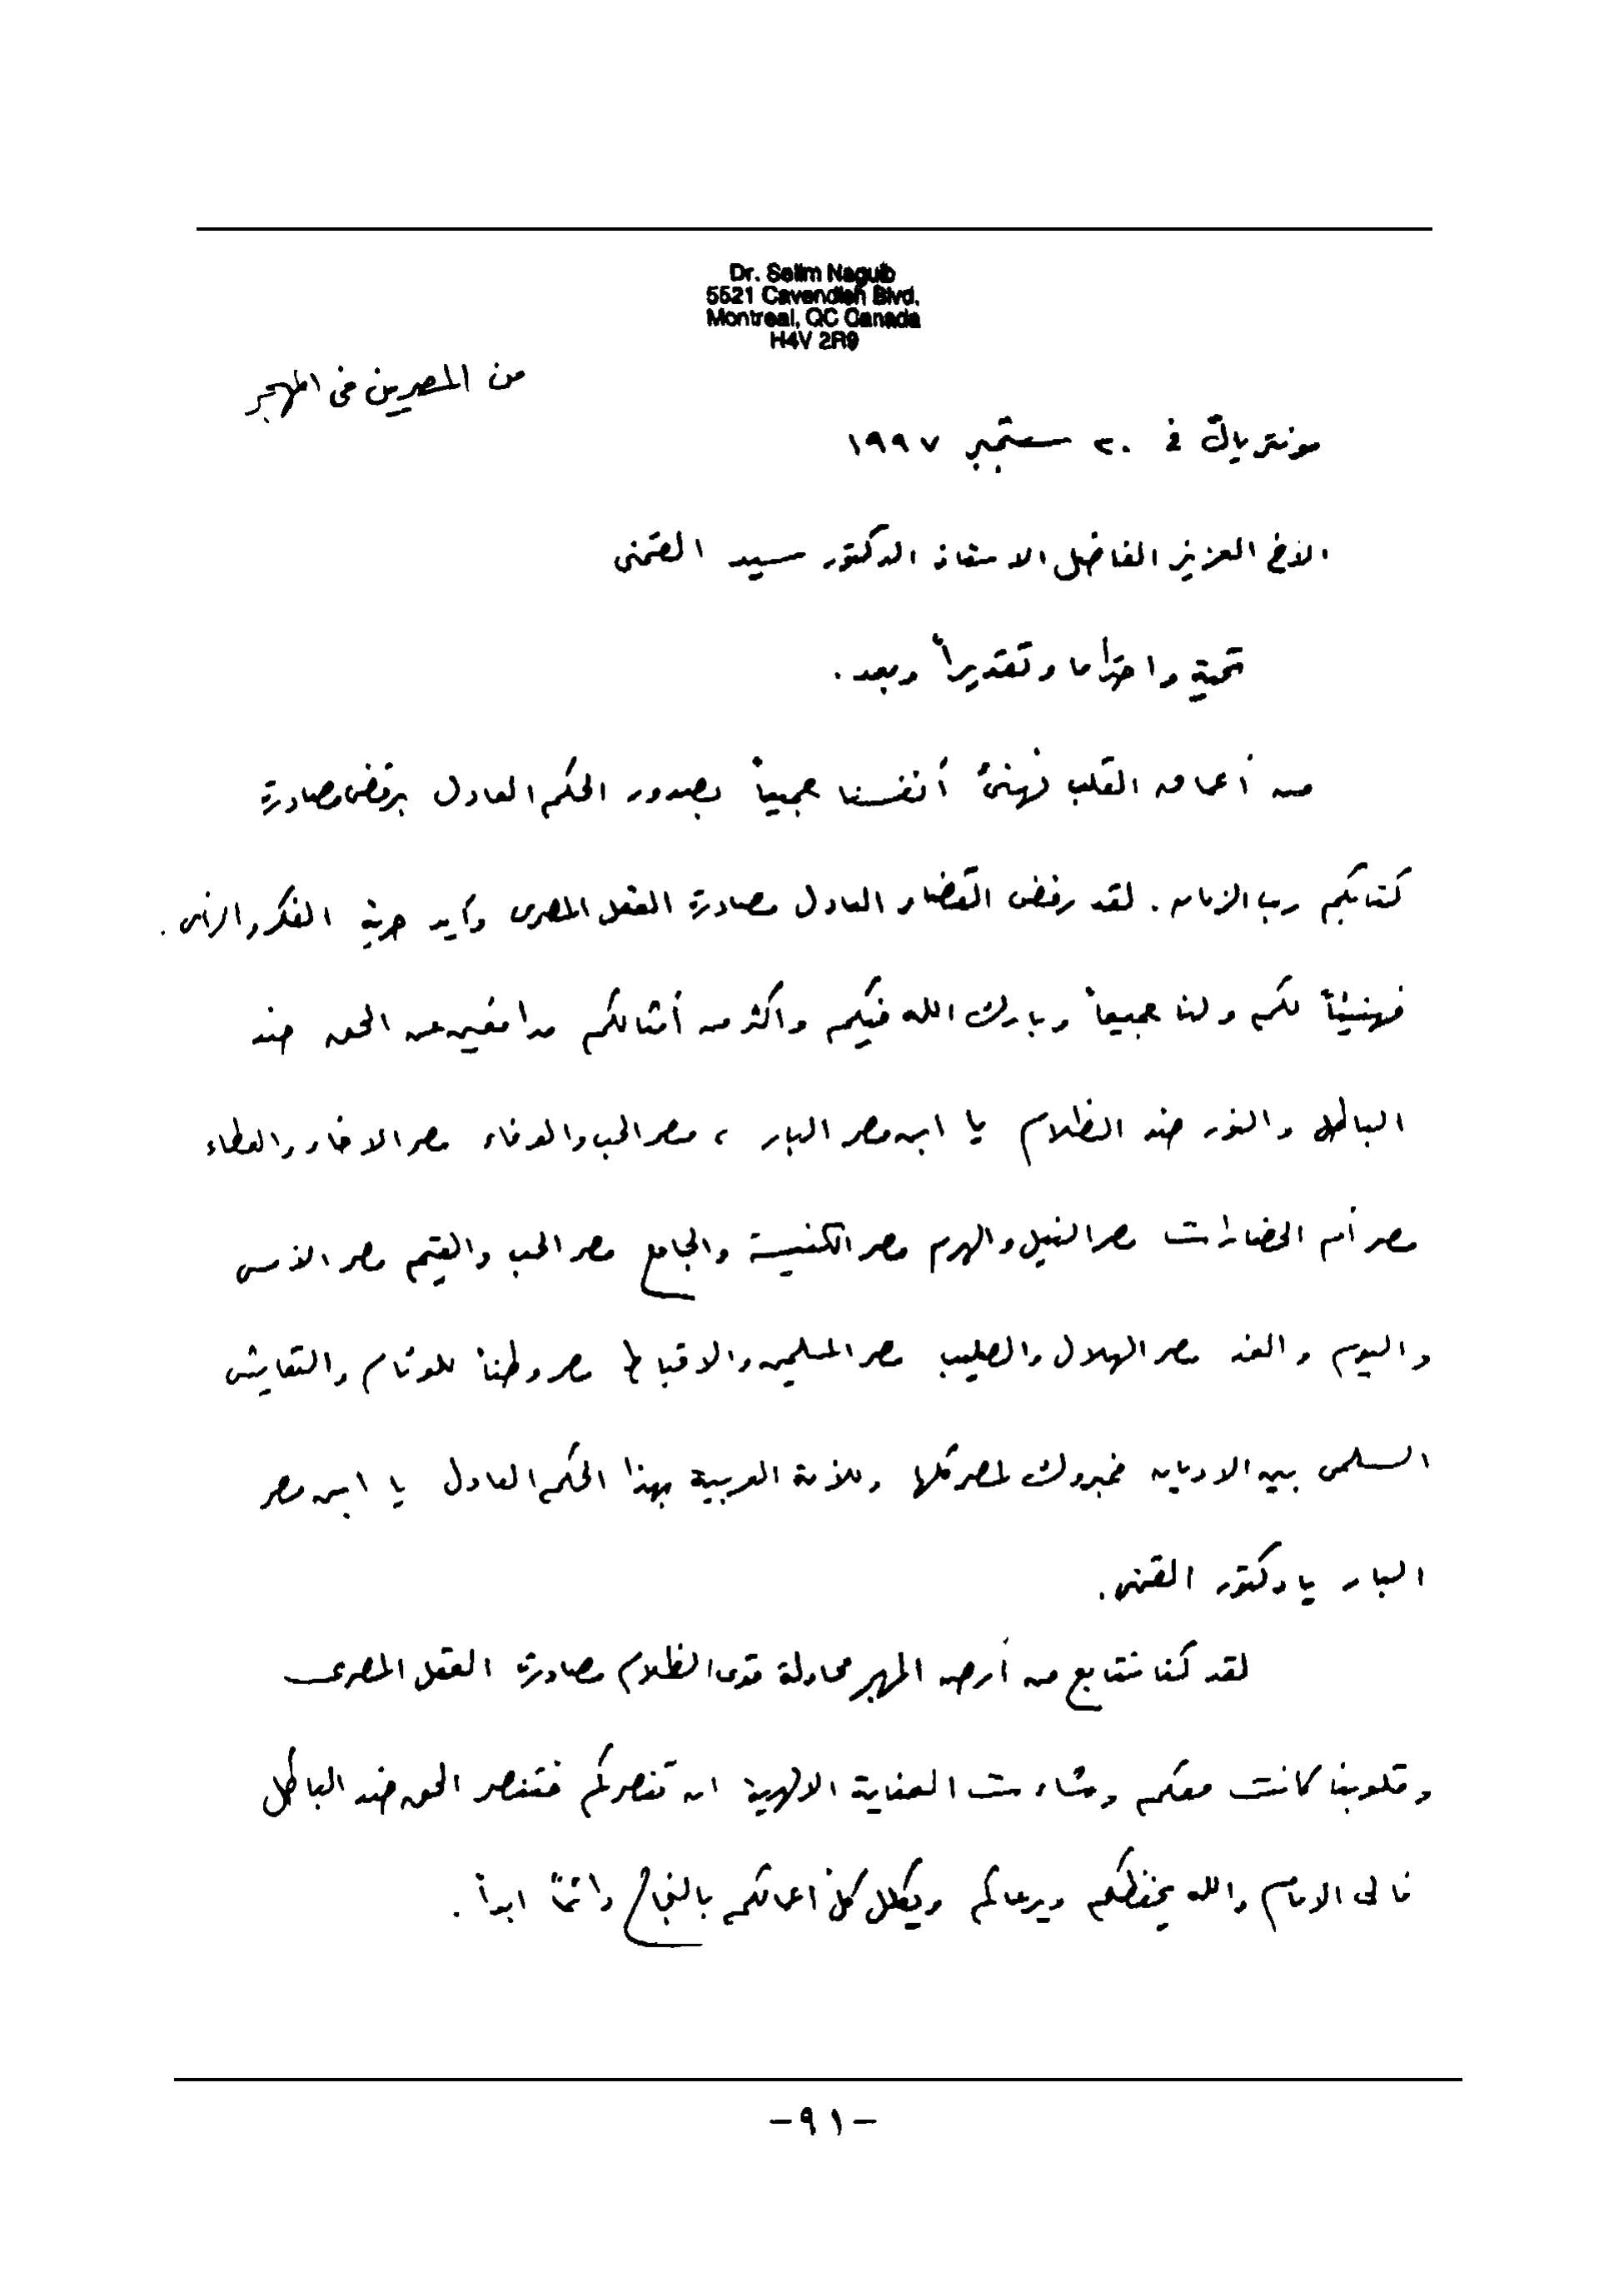 Dr. Selim Naguib
5521 Cavendish Blvd.
Montreal, QC Canada
H4V 2R9
من المصريين فى المهجر
مونتريال في ٢٠ سبتمبر ١٩٩٧
الأخ العزيز الفاضل الاستاذ الدكتور سيد القمنى
تحية واحتراما وتقديراً وبعد.
من أعماق القلب نهنئ أنفسنا جميعاً بصدور الحكم العادل برفض مصادرة
كتابكم رب الزمان. لقد رفض القضاء العادل مصادرة العقل المصرى وأيد حرية الفكر والرأى.
فهنيئاً لكم ولنا جميعاً وبارك الله فيكم وأكثر من أمثالكم مدافعين عن الحق ضد
الباطل والنور ضد الظلام يا ابن مصر البار، مصر الحب والوفاء مصر الاخاء والعطاء
مصر أم الحضارات مصر النيل والهرم مصر الكنيسة والجامع مصر الحب والقيم مصر الأمس
واليوم والغد مصر الهلال والصليب مصر المسلمين والاقباط مصر وطناً للوئام والتعايش
السلمى بين الاديان فمبروك لمصر كلها وللأمة العربية بهذا الحكم العادل يا ابن مصر
البار يا دكتور القمنى.
لقد كنا نتابع من أرض المهجر محاولة قوى الظلام مصادرة العقل المصرى
وقلوبنا كانت معكم وشاءت العناية الالهية ان تنصركم فتنصر الحق ضد الباطل
فالى الامام والله يحفظكم ويرعاكم ويكلل كل أعمالكم بالنجاح دائماً ابداً.
-٩١-